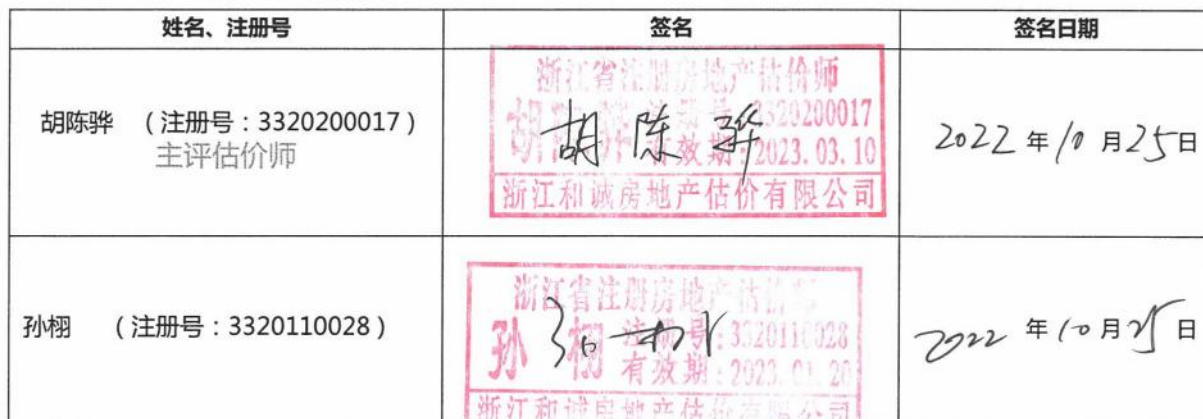 姓名、注册号 签名 签名日期
胡陈骅 （注册号：3320200017）
主评估价师
浙江省注册房地产估价师
胡陈骅 注册号：3320200017
有效期：2023.03.10
浙江和诚房地产估价有限公司
胡陈骅
2022年10月25日
孙栩 （注册号：3320110028）
浙江省注册房地产估价师
孙栩 注册号：3320110028
有效期：2023.01.20
浙江和诚房地产估价有限公司
孙栩
2022年10月25日